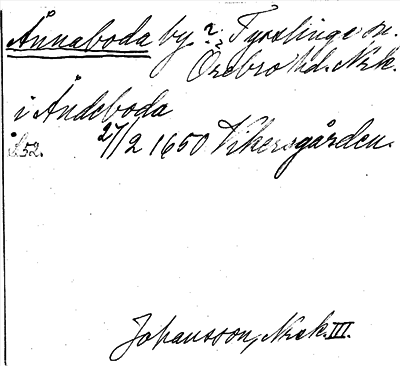 Ånnaboda by ? Tysslinge sn.
Örebro hd. Nrk.
i Åndeboda
27/2 1650 Vikersgården.
Johansson, Nrk. III.